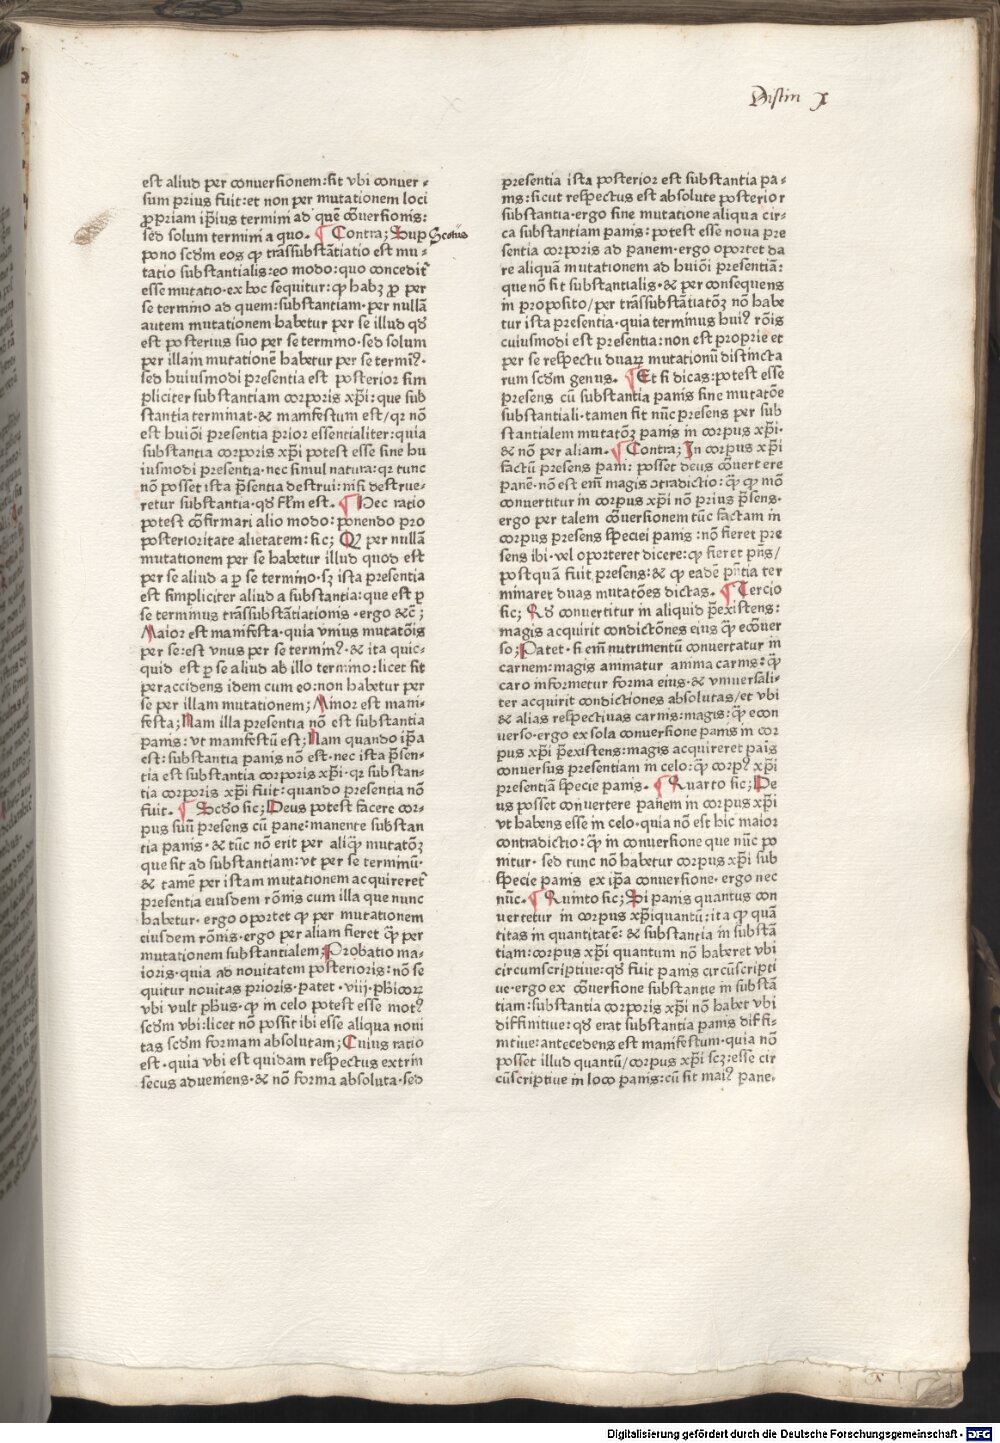 Distin X
est aliud per conuersionem:sit vbi conuer-
sum prius fuit:et non per mutationem loci
ꝓpriam ip̅ius termini ad quē cōuersionis:
sed solum termini a quo. ¶ Contra; Sup Scotus
pono scd̅m eos ꝙ trāssubstātiatio est mu-
tatio substantialis:eo modo:quo concedit᷑
esse mutatio·ex hoc sequitur:ꝙ habꝫ ꝓ per
se termino ad quem:substantiam·per nullā
autem mutationem habetur per se illud qd̅
est posterius suo per se termino·sed solum
per illam mutationē habetur per se termin᷒·
sed huiusmodi presentia est posterior sim
pliciter substantiam corporis xp̅i:que sub
stantia terminat·& manifestum est/qr nō
est huiōi presentia prior essentialiter:quia
substantia corporis xp̅i potest esse sine hu
iusmodi presentia·nec simul natura:qr tunc
nō posset ista p̅sentia destrui:nisi destrue-
retur substantia·qd̅ fl̅m est. ¶ Hec ratio
potest cōfirmari alio modo:ponendo pro
posterioritate alietatem:sic; Q per nullā
mutationem per se habetur illud quod est
per se aliud a ꝑ se termino·sꝫ ista presentia
est simpliciter aliud a substantia:que est ꝑ
se terminus trāssubstātiationis·ergo &c̅;
Maior est manifesta·quia vnius mutatōis
per se:est vnus per se termin᷒·& ita quic-
quid est ꝑ se aliud ab illo termino:licet sit
peraccidens idem cum eo:non habetur per
se per illam mutationem; Minor est mani-
festa; Nam illa presentia nō est substantia
panis:vt manifestū est; Nam quando ip̅a
est:substantia panis nō est·nec ista p̅sen-
tia est substantia corporis xp̅i·qr substan-
tia corporis xp̅i fuit:quando presentia nō
fuit. ¶ Scd̅o sic; Deus potest facere cor-
pus suū presens cū pane:manente substan
tia panis·& tūc nō erit per aliꝙ̄ mutatōꝫ
que sit ad substantiam:vt per se terminū·
& tamē per istam mutationem acquireret᷑
presentia eiusdem rōnis cum illa que nunc
habetur·ergo oportet ꝙ per mutationem
eiusdem rōnis·ergo per aliam fieret ꝙ̄ per
mutationem substantialem; Probatio ma-
ioris·quia ad nouitatem posterioris:nō se
quitur nouitas prioris·patet·viij·ph̅icoꝝ
vbi vult ph̅us·ꝙ in celo potest esse mot᷒
scd̅m vbi:licet nō possit ibi esse aliqua noui
tas scd̅m formam absolutam; Cuius ratio
est·quia vbi est quidam respectus extrin
secus adueniens·& nō forma absoluta·sed
presentia ista posterior est substantia pa-
nis:sicut respectus est absolute posterior
substantia·ergo sine mutatione aliqua cir-
ca substantiam panis:potest esse noua pre
sentia corporis ad panem·ergo oportet da
re aliquā mutationem ad huiōi presentiā:
que nō sit substantialis·& per consequens
in proposito/per trāssubstātiatōꝫ nō habe
tur ista presentia·quia terminus hui᷒ rōis
cuiusmodi est presentia:non est proprie et
per se respectu duaꝝ mutationū distincta
rum scd̅m genus. ¶ Et si dicas:potest esse
presens cū substantia panis sine mutatōe
substantiali·tamen sit nūc presens per sub
stantialem mutatōꝫ panis in corpus xp̅i·
& nō per aliam. ¶ Contra; In corpus xp̅i
factū presens pani: posset deus cōuert ere
panē·nō est em̅ magis ↄtradictio:ꝙ̄ ꝙ mō
conuertitur in corpus xp̅i nō prius p̅sens·
ergo per talem cōuersionem tūc factam in
corpus presens speciei panis:nō fieret pre
sens ibi·vel oporteret dicere:ꝙ fieret pn̅s/
postquā fuit presens:& ꝙ eadē pn̅tia ter
minaret duas mutatōes dictas. ¶ Tercio
sic; Qd̅ conuertitur in aliquid p̅existens:
magis acquirit condictōnes eius ꝙ̄ ecōuer
so; Patet·si em̅ nutrimentū conuertatur in
carnem:magis animatur anima carnis:ꝙ̄
caro informetur forma eius·& vniuersali-
ter acquirit condictiones absolutas/et vbi
& alias respectiuas carnis:magis:ꝙ̄ econ
uerso·ergo ex sola conuersione panis in cor
pus xp̅i p̅existens:magis acquireret pais̅
conuersus presentiam in celo:ꝙ̄ corp᷒ xp̅i
presentiā specie panis. ¶ Quarto sic; De
us posset conuertere panem in corpus xp̅i
vt habens esse in celo·quia nō est hic maior
contradictio:ꝙ̄ in conuersione que nūc po
nitur·sed tunc nō habetur corpus xp̅i sub
specie panis ex ip̅a conuersione·ergo nec
nūc. ¶ Quinto sic; Si panis quantus con
uertetur in corpus xp̅iquantū:ita ꝙ quā
titas in quantitatē:& substantia in substā
tiam:corpus xp̅i quantum nō haberet vbi
circumscriptiue:qd̅ fuit panis circūscripti
ue·ergo ex cōuersione substantie in substā
tiam:substantia corporis xp̅i nō habet vbi
diffinitiue:qd̅ erat substantia panis diffi-
nitiue:antecedens est manifestum·quia nō
posset illud quantū/corpus xp̅i scꝫ:esse cir
cūscriptiue in loco panis:cū sit mai᷒ pane·
Digitalisierung gefördert durch die Deutsche Forschungsgemeinschaft - DFG